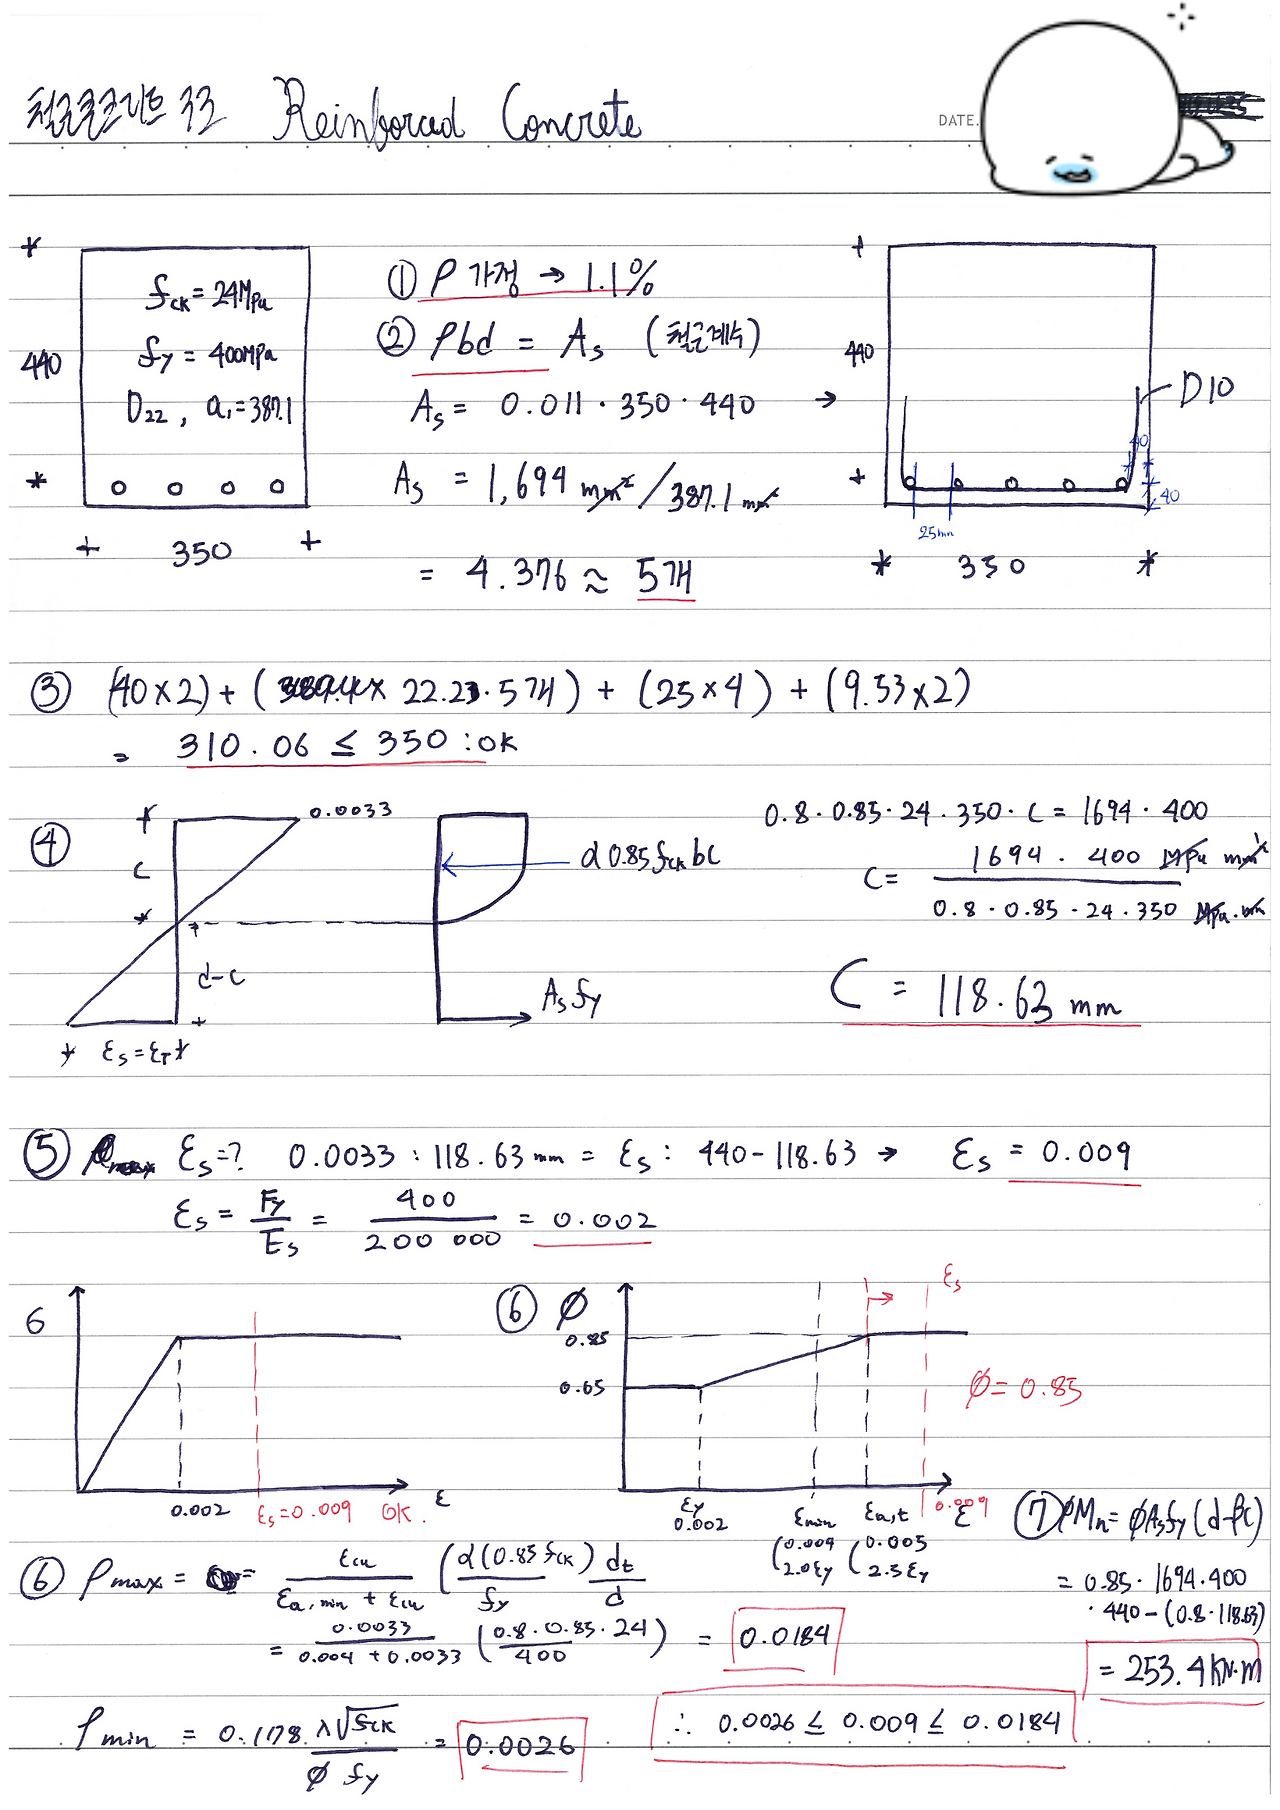 철근콘크리트 구조 Reinforced Concrete
DATE.
440
fck = 24MPa
fy = 400MPa
D22 , a1 = 387.1
350
① ρ 가정 → 1.1%
② ρbd = As (철근계수)
As = 0.011 · 350 · 440 →
As = 1,694 mm² / 387.1 mm²
= 4.376 ≈ 5개
440
D10
40
40
25mm
350
③ (40×2) + ( 22.23 · 5개) + (25×4) + (9.53×2)
= 310.06 ≤ 350 : OK
④
0.0033
C
d-c
εs = εT
α 0.85 fck bc
As fy
0.8 · 0.85 · 24 · 350 · C = 1694 · 400
C = 1694 · 400 MPa mm² / 0.8 · 0.85 · 24 · 350 MPa · mm
C = 118.63 mm
⑤ εs = ? 0.0033 : 118.63 mm = εs : 440 - 118.63 → εs = 0.009
εs = Fy / Es = 400 / 200 000 = 0.002
б
0.002
εs = 0.009 OK.
ε
⑥ ø
0.85
0.65
εs
ø = 0.85
εy 0.002
εmin (0.009 2.0εy
εa,t (0.005 2.5εy
0.009
ε
⑦ øMn = øAsfy (d-βc)
= 0.85 · 1694 · 400
· 440 - (0.8 · 118.63)
= 253.4 kN·m
⑥ ρmax = = εcu / εa,min + εcu (α(0.85 fck) / fy) dt / d
= 0.0033 / 0.004 + 0.0033 (0.8 · 0.85 · 24 / 400) = 0.0184
ρmin = 0.178 λ√fck / ø fy = 0.0026
∴ 0.0026 ≤ 0.009 ≤ 0.0184